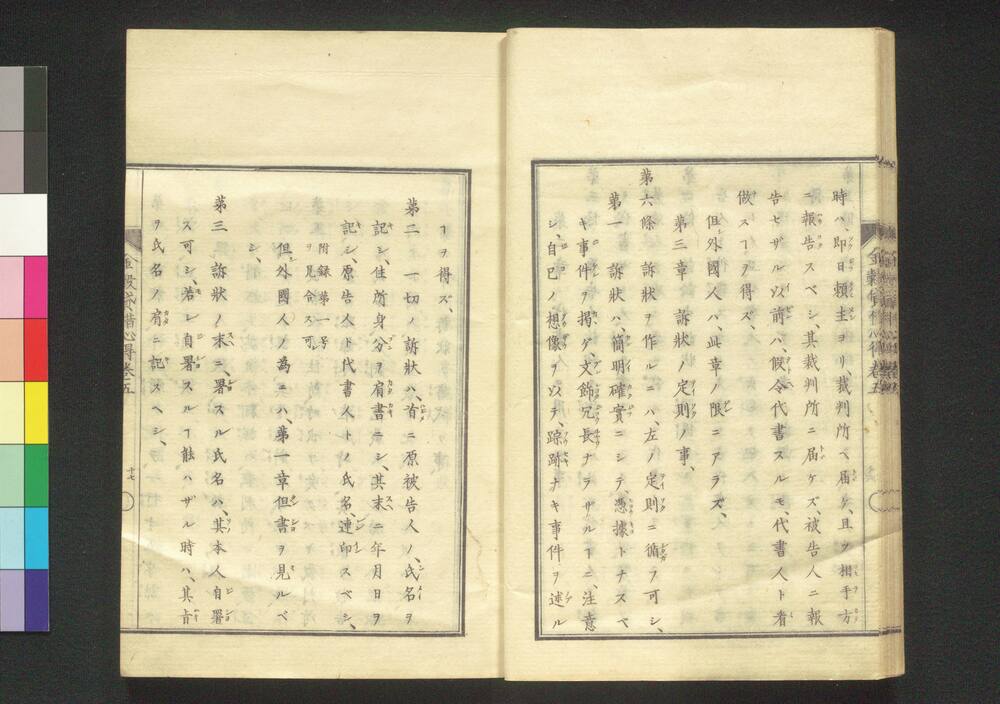 時ハ、即日頼主ヨリ、裁判所ヘ届ケ、且ツ相手方
ニ報告スベシ、其裁判所ニ届ケズ、被告人ニ報
告セザル以前ハ、假令代書スルモ、代書人ト看
做スヿヲ得ズ、
但外國人ハ、此章ノ限ニアラズ、
第三章 訴狀ノ定則ノ事、
第六條 訴狀ヲ作ルニハ、左ノ定則ニ循フ可シ、
第一 訴狀ハ、簡明確實ニシテ、憑據トナスベ
キ事件ヲ掲ゲ、文飾冗長ナラザルヿニ、注意
シ、自己ノ想像ヲ以テ、踪跡ナキ事件ヲ述ル
ヿヲ得ズ、
第二 一切ノ訴狀ハ、首ニ原被告人ノ、氏名ヲ
記シ、住所身分ヲ肩書ニシ、其末ニ年月日ヲ
記シ、原告人ト代書人トノ氏名、連印スベシ、
附録第一号
ヲ見合ス可シ
但外國人ノ為ニハ、第一章但書ヲ見ルベ
シ、
第三 訴狀ノ末ニ、署スル氏名ハ、其本人自署
ス可シ、若シ自署スルヿ能ハザル時ハ、其旨
ヲ氏名ノ肩ニ記スヘシ、
金穀貸借心得卷五
十七